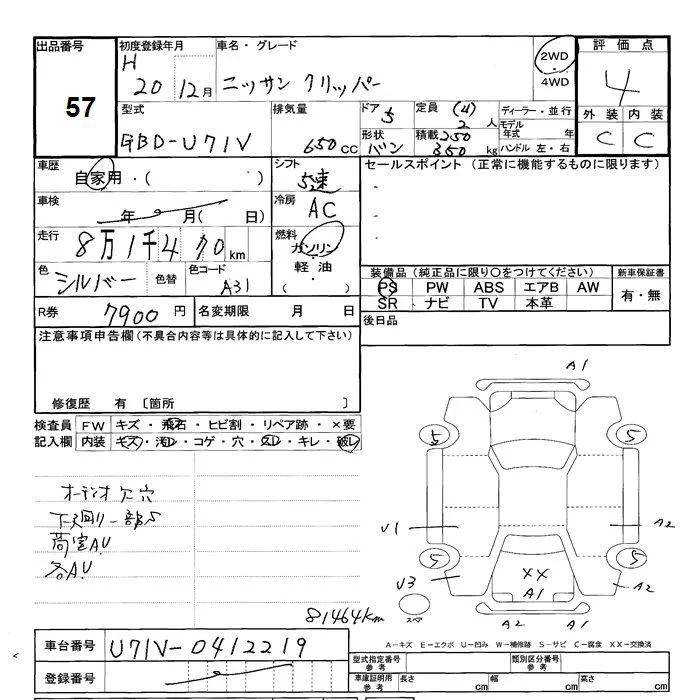 出品番号
57
初度登録年月
H
20 12月
車名・グレード
ニッサン クリッパー
2WD
4WD
評価点
4
外装 内装
C C
型式
GBD-U71V
排気量
650cc
ドア
5
形状
バン
定員 (4)
2人
積載 250
350 kg
ディーラー・並行
モデル
年式 年
ハンドル 左・右
車歴
自家用・( )
シフト
5速
セールスポイント (正常に機能するものに限ります)
車検
年 月( 日)
冷房
AC
走行
8万1千4 70km
燃料
ガソリン
軽油
色
シルバー
色替
色コード
A31
装備品 (純正品に限り○をつけてください)
新車保証書
PS PW ABS エアB AW
SR ナビ TV 本革
有・無
R券
7900円
名変期限 月 日
後日品
注意事項申告欄(不具合内容等は具体的に記入して下さい)
修復歴 有 〔箇所 〕
検査員 FW キズ・飛石・ヒビ割・リペア跡・×要
記入欄 内装 キズ・汚レ・コゲ・穴・スレ・キレ・破レ
オーディオ欠穴
下廻り一部S
荷室AU
各AU
81464km
A1
5 5
U1 A2
5 5
U3 XX A2
A1
スペア
A2 A1
A-キズ E-エクボ U-凹み W-補修跡 S-サビ C-腐食 XX-交換済
車台番号
U71V-0412219
登録番号
型式指定番号
参考
類別区分番号
参考
車庫証明用
参考
長さ cm 幅 cm 高さ cm